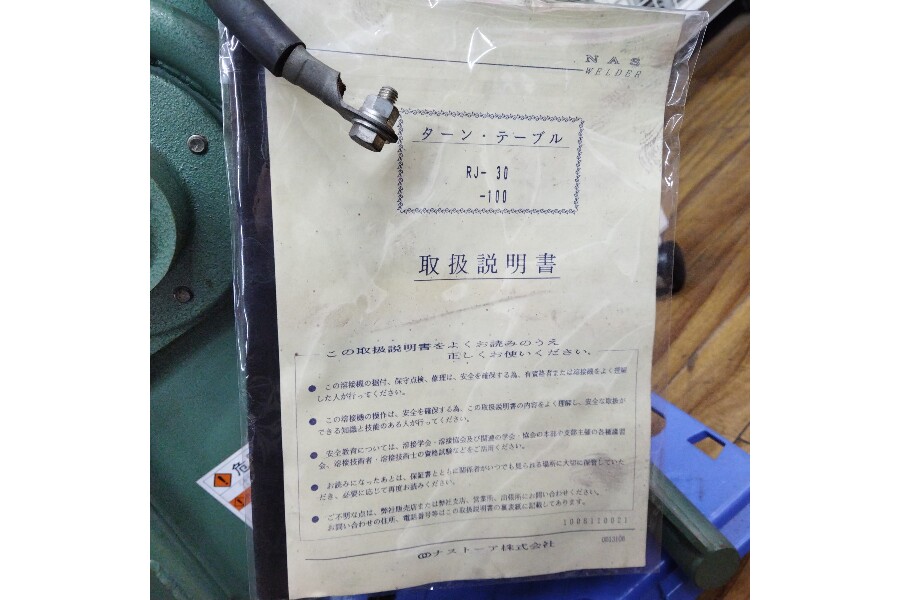 NAS
WELDER
ターン・テーブル
RJ- 30
-100
取扱説明書
この取扱説明書をよくお読みのうえ
正しくお使いください。
● この溶接機の据付、保守点検、修理は、安全を確保する為、有資格者または溶接機をよく理解
した人が行ってください。
● この溶接機の操作は、安全を確保する為、この取扱説明書の内容をよく理解し、安全な取扱が
できる知識と技能のある人が行ってください。
● 安全教育については、溶接学会・溶接協会及び関連の学会・協会の本部や支部主催の各種講習
会、溶接技術者・溶接技術士の資格試験などをご活用ください。
● お読みになったあとは、保証書とともに関係者がいつでも見られる場所に大切に保管していた
だき、必要に応じて再度お読みください。
● ご不明な点は、弊社販売店または弊社支店、営業所、出張所にお問い合わせください。
お問い合わせの住所、電話番号等はこの取扱説明書の裏表紙に記載してあります。
1008110021
ナストーア株式会社
危